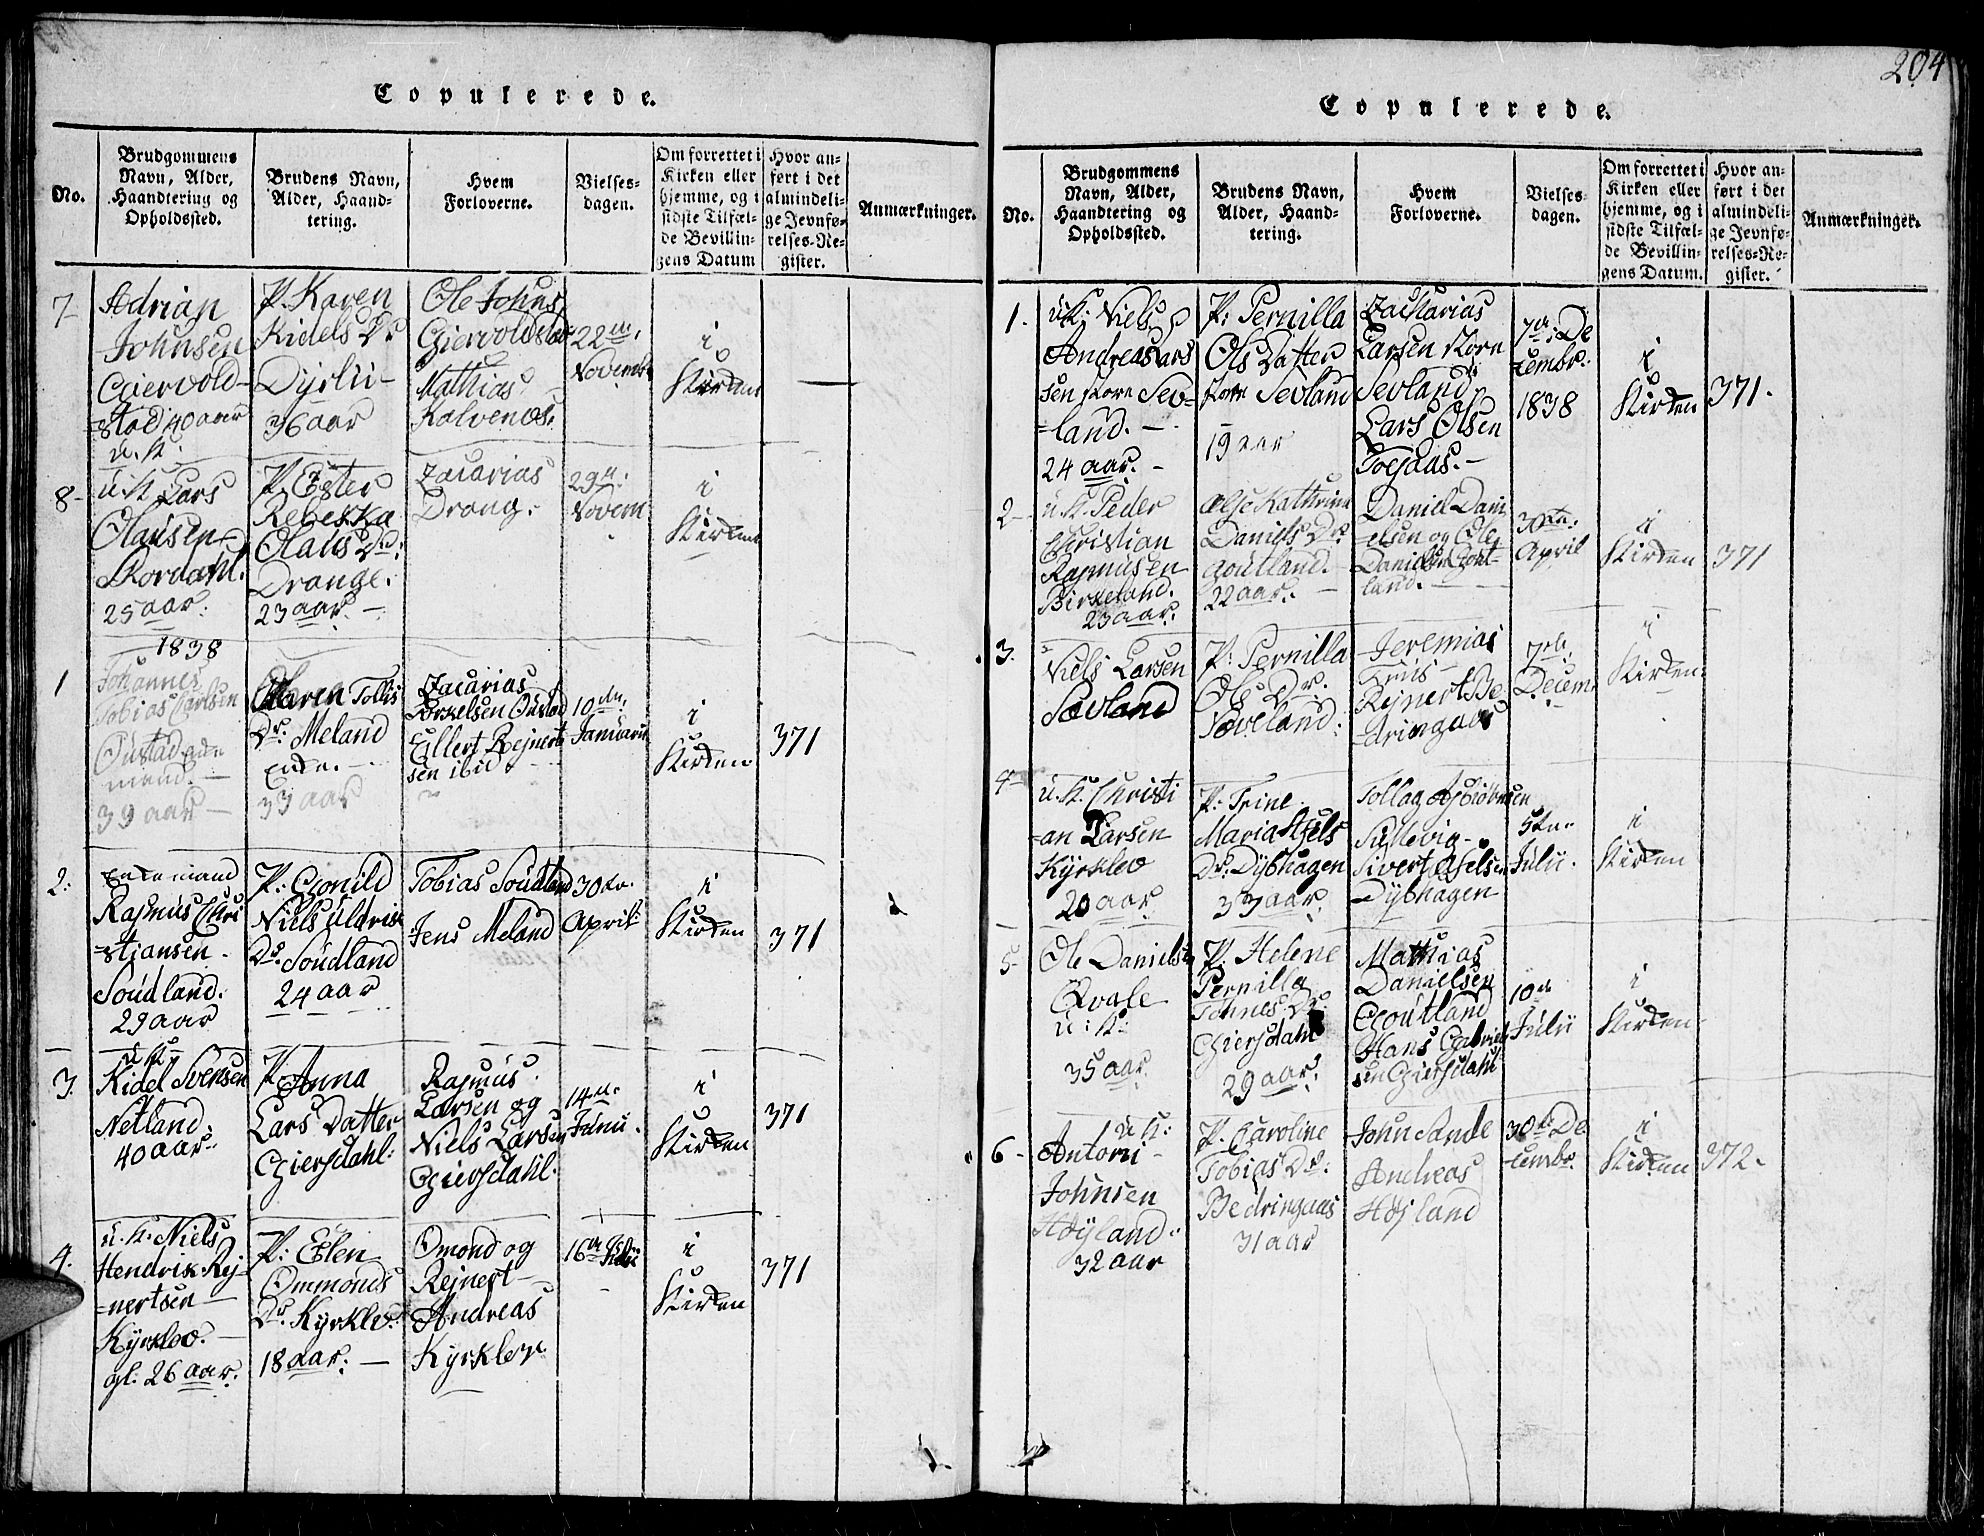 Copulerede.
No.
Brudgommens
Navn, Alder,
Haandtering og
Opholdssted.
Brudens Navn,
Alder, Haand-
tering.
Hvem
Forloverne.
Vielses-
dagen.
Om forrettet i
Kirken eller
hjemme, og i
sidste Tilfæl-
de Bevillin-
gens Datum
Hvor an-
ført i det
almindeli-
ge Jevnfø-
relses-Re-
gister.
Anmærkninger.
7
Adrian
Johnsen
Giervold-
=stad 40 aar
u. K.
P. Karen
Kidels Dr
Dyrlii-
36 aar
Ole Johns
Giervoldstad
Mathias
Kalvenes.
22de
Novembr
i
Kirken
8-
u. K. Lars
Olausen
Skordahl.
25 aar.
P. Ester
Rebekka
Olaus Dr:
Drange.
23 aar. -
Zacarias
Drang.
29de
Novem
i
Kirken
1838
1
Johannes
Tobias Carlsen
Oustad enke
mand. -
39 aar -
Karen Tollis
Dr. Meland
Enke. -
33 aar
Zacarias
Torkelsen Oustad
Eillert Rejnert
sen ibid
10de
Januarii
i
Kirken
371
2:
Enkemand
Rasmus Chri
=stjansen.
Soudland.
29 aar
P. Gonild
Niels Uldrik
Dr. Soudland
24 aar
Tobias Soudland
Jens Meland
30te
April
i
Kirken
371
3.
u K
Kidel Svensen
Netland.
40 aar.
P. Anna
Lars Datter
Giersdahl.
Rasmus
Larsen og
Niels Larsen
Giersdahl.
14de
Junii.
i
Kirken
371
4.
u. K. Niels
Hendrik Rej-
=nertsen -
Kyrklev. -
gl. 26 aar.
P. Elen
Ommonds
Dr. Kyrklev.
18 aar. -
Omond og
Rejnert -
Andreas
Kyrklev
16de Julii
i
Kirken
371
204
Copulerede.
No.
Brudgommens
Navn, Alder,
Haandtering og
Opholdssted.
Brudens Navn,
Alder, Haand-
tering.
Hvem
Forloverne.
Vielses-
dagen.
Om forrettet i
Kirken eller
hjemme, og i
sidste Tilfæl-
de Bevillin-
gens Datum.
Hvor an-
ført i det
almindeli-
ge Jevnfø-
relses-Re-
gister.
Anmærkninger.
1.
u. K. Niels
Andreas Lars
sen Store Sev=
=land. -
24 aar. -
P. Pernilla
Ols Datter
Store Sevland
19 aar
Zacharias
Larsen Store
Sevland
Lars Olsen
7de De
cembr.
1838
i
Kirken
371.
2-
u. K. Peder
Christian
Rasmusen
Birkeland.
23 aar.
Else Kathrine
Daniels Dr
Goutland.
22 aar. -
Daniel Dani
elsen og Ole
Danielsen Gout-
land. -
30te
April
i
Kirken
371
3.
Niels Larsen
Sævland
P. Pernilla
Ols Dr.
Sæveland.
Jeremias
Rejnert Be
=dringaas
7de
Decem
i
Kirken
4-
u. K. Christi
=an Larsen
Kyrklev
20 aar
P. Trine
Maria Axels
Dr. Dybhagen
33 aar.
Tollag Asbiörnsen
Sullevig -
Sivert Axelsen
Dybhagen
5te
Julii.
i
Kirken
5-
Ole Danielsen
Qvale
u: K:
35 aar.
P. Helene
Pernilla
Tønnes Dr.
Giersdahl
29 aar.
Mathias
Danielsen
Goutland
Hans Gabriel
sen Giersdahl
10de
Julii
i
Kirken
6-
u K:
Antoni-
Johnsen
Høyland.
32 aar
P. Caroline
Tobias Dr.
Bedringaas
31 aar
John Sande
Andreas
Højland
30te De
cembr.
i
Kirken
372.